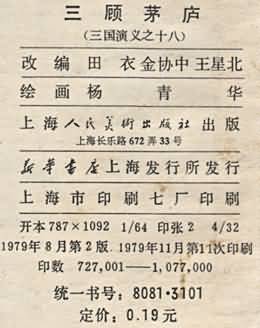 三顾茅庐
(三国演义之十八)
改编 田衣 金协中 王星北
绘画 杨青华
上海人民美术出版社出版
上海长乐路672弄33号
新华书店上海发行所发行
上海市印刷七厂印刷
开本787×1092 1/64 印张2 4/32
1979年8月第2版 1979年11月第11次印刷
印数 727,001—1,077,000
统一书号：8081·3101
定价：0.19元